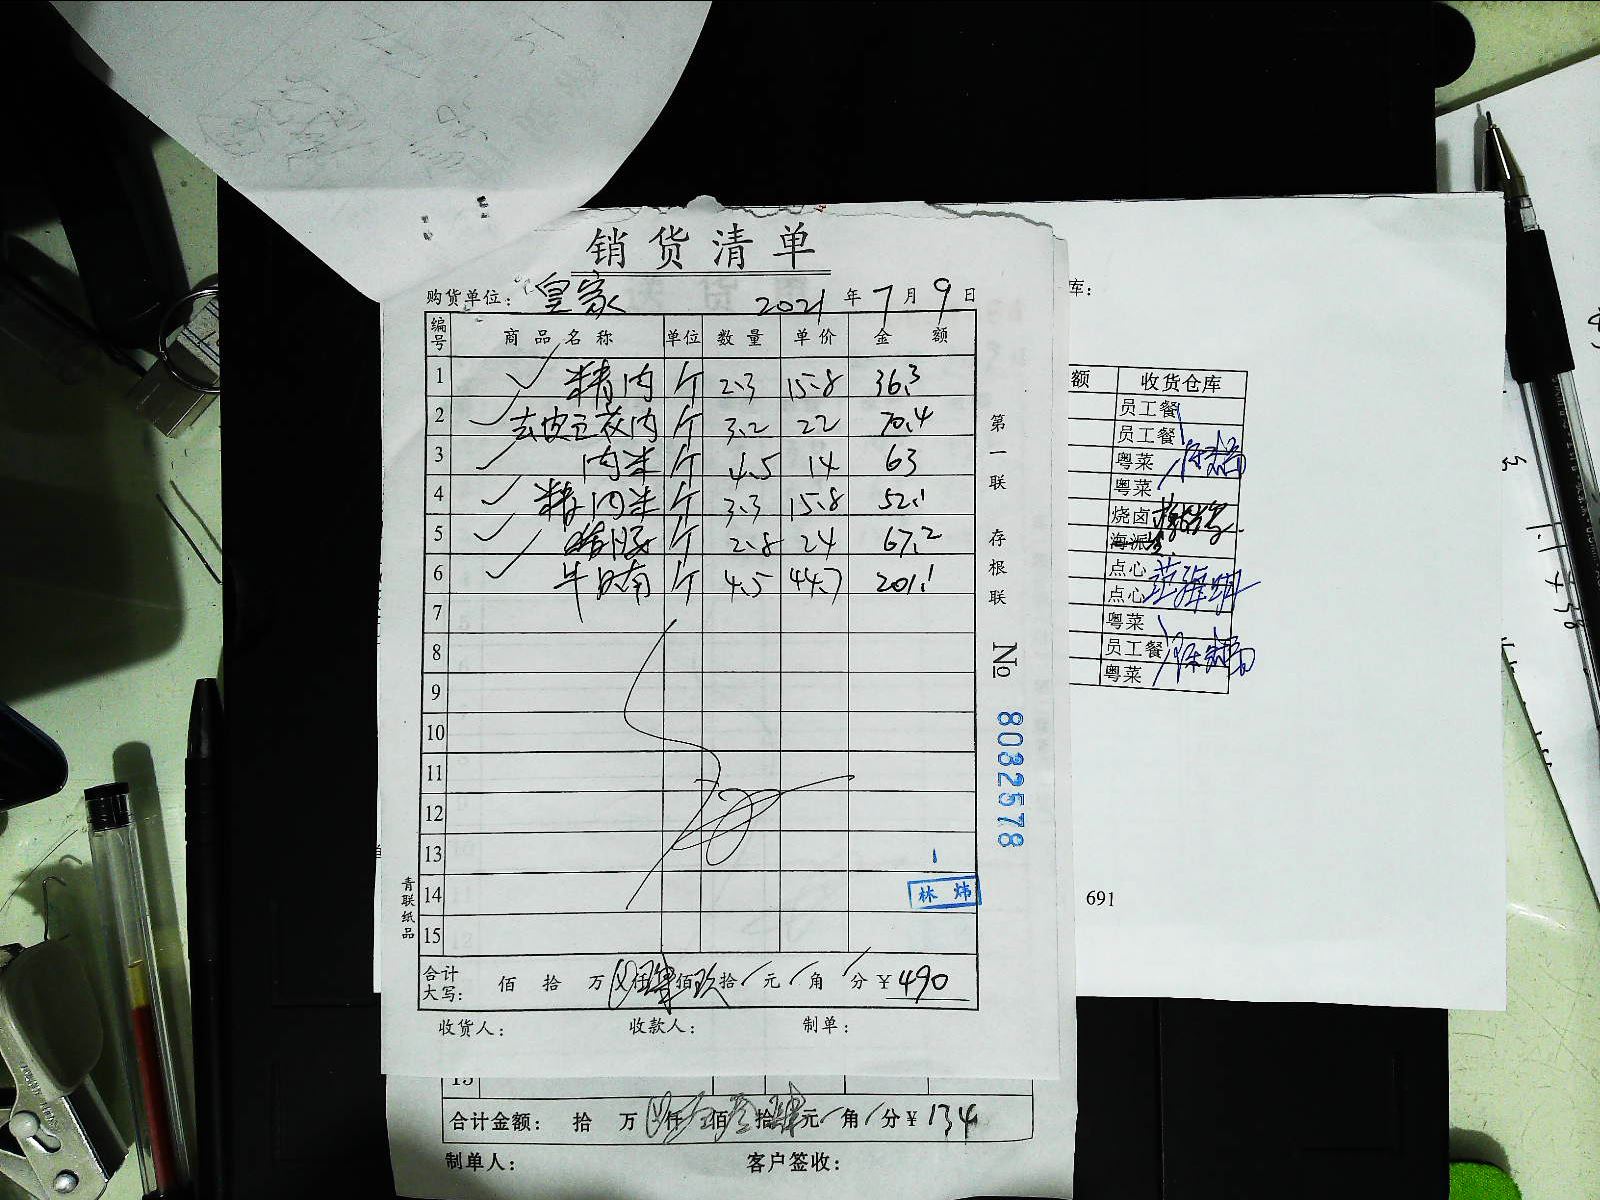 销货清单
购货单位: 皇家 2021 年 7 月 9 日
编号 商品名称 单位 数量 单价 金额
1 精肉 斤 2.3 15.8 36.3
2 去皮五花肉 斤 3.2 22 70.4
3 肉米 斤 4.5 14 63
4 精肉米 斤 3.3 15.8 52.1
5 斤 2.8 24 67.2
6 牛腩 斤 4.5 44.7 201.1
7
8
9
10
11
12
13
14
15
林炜
合计大写: 佰 拾 万 仟肆佰玖拾 元 角 分 ¥490
收货人: 收款人: 制单:
第一联 存根联
№ 8032578
青联纸品
库:
额 收货仓库
员工餐
员工餐
粤菜
粤菜
烧卤
海派
点心
点心
粤菜
员工餐
粤菜
691
15
合计金额: 拾 万 仟 佰 拾 元 角 分 ¥134
制单人: 客户签收: